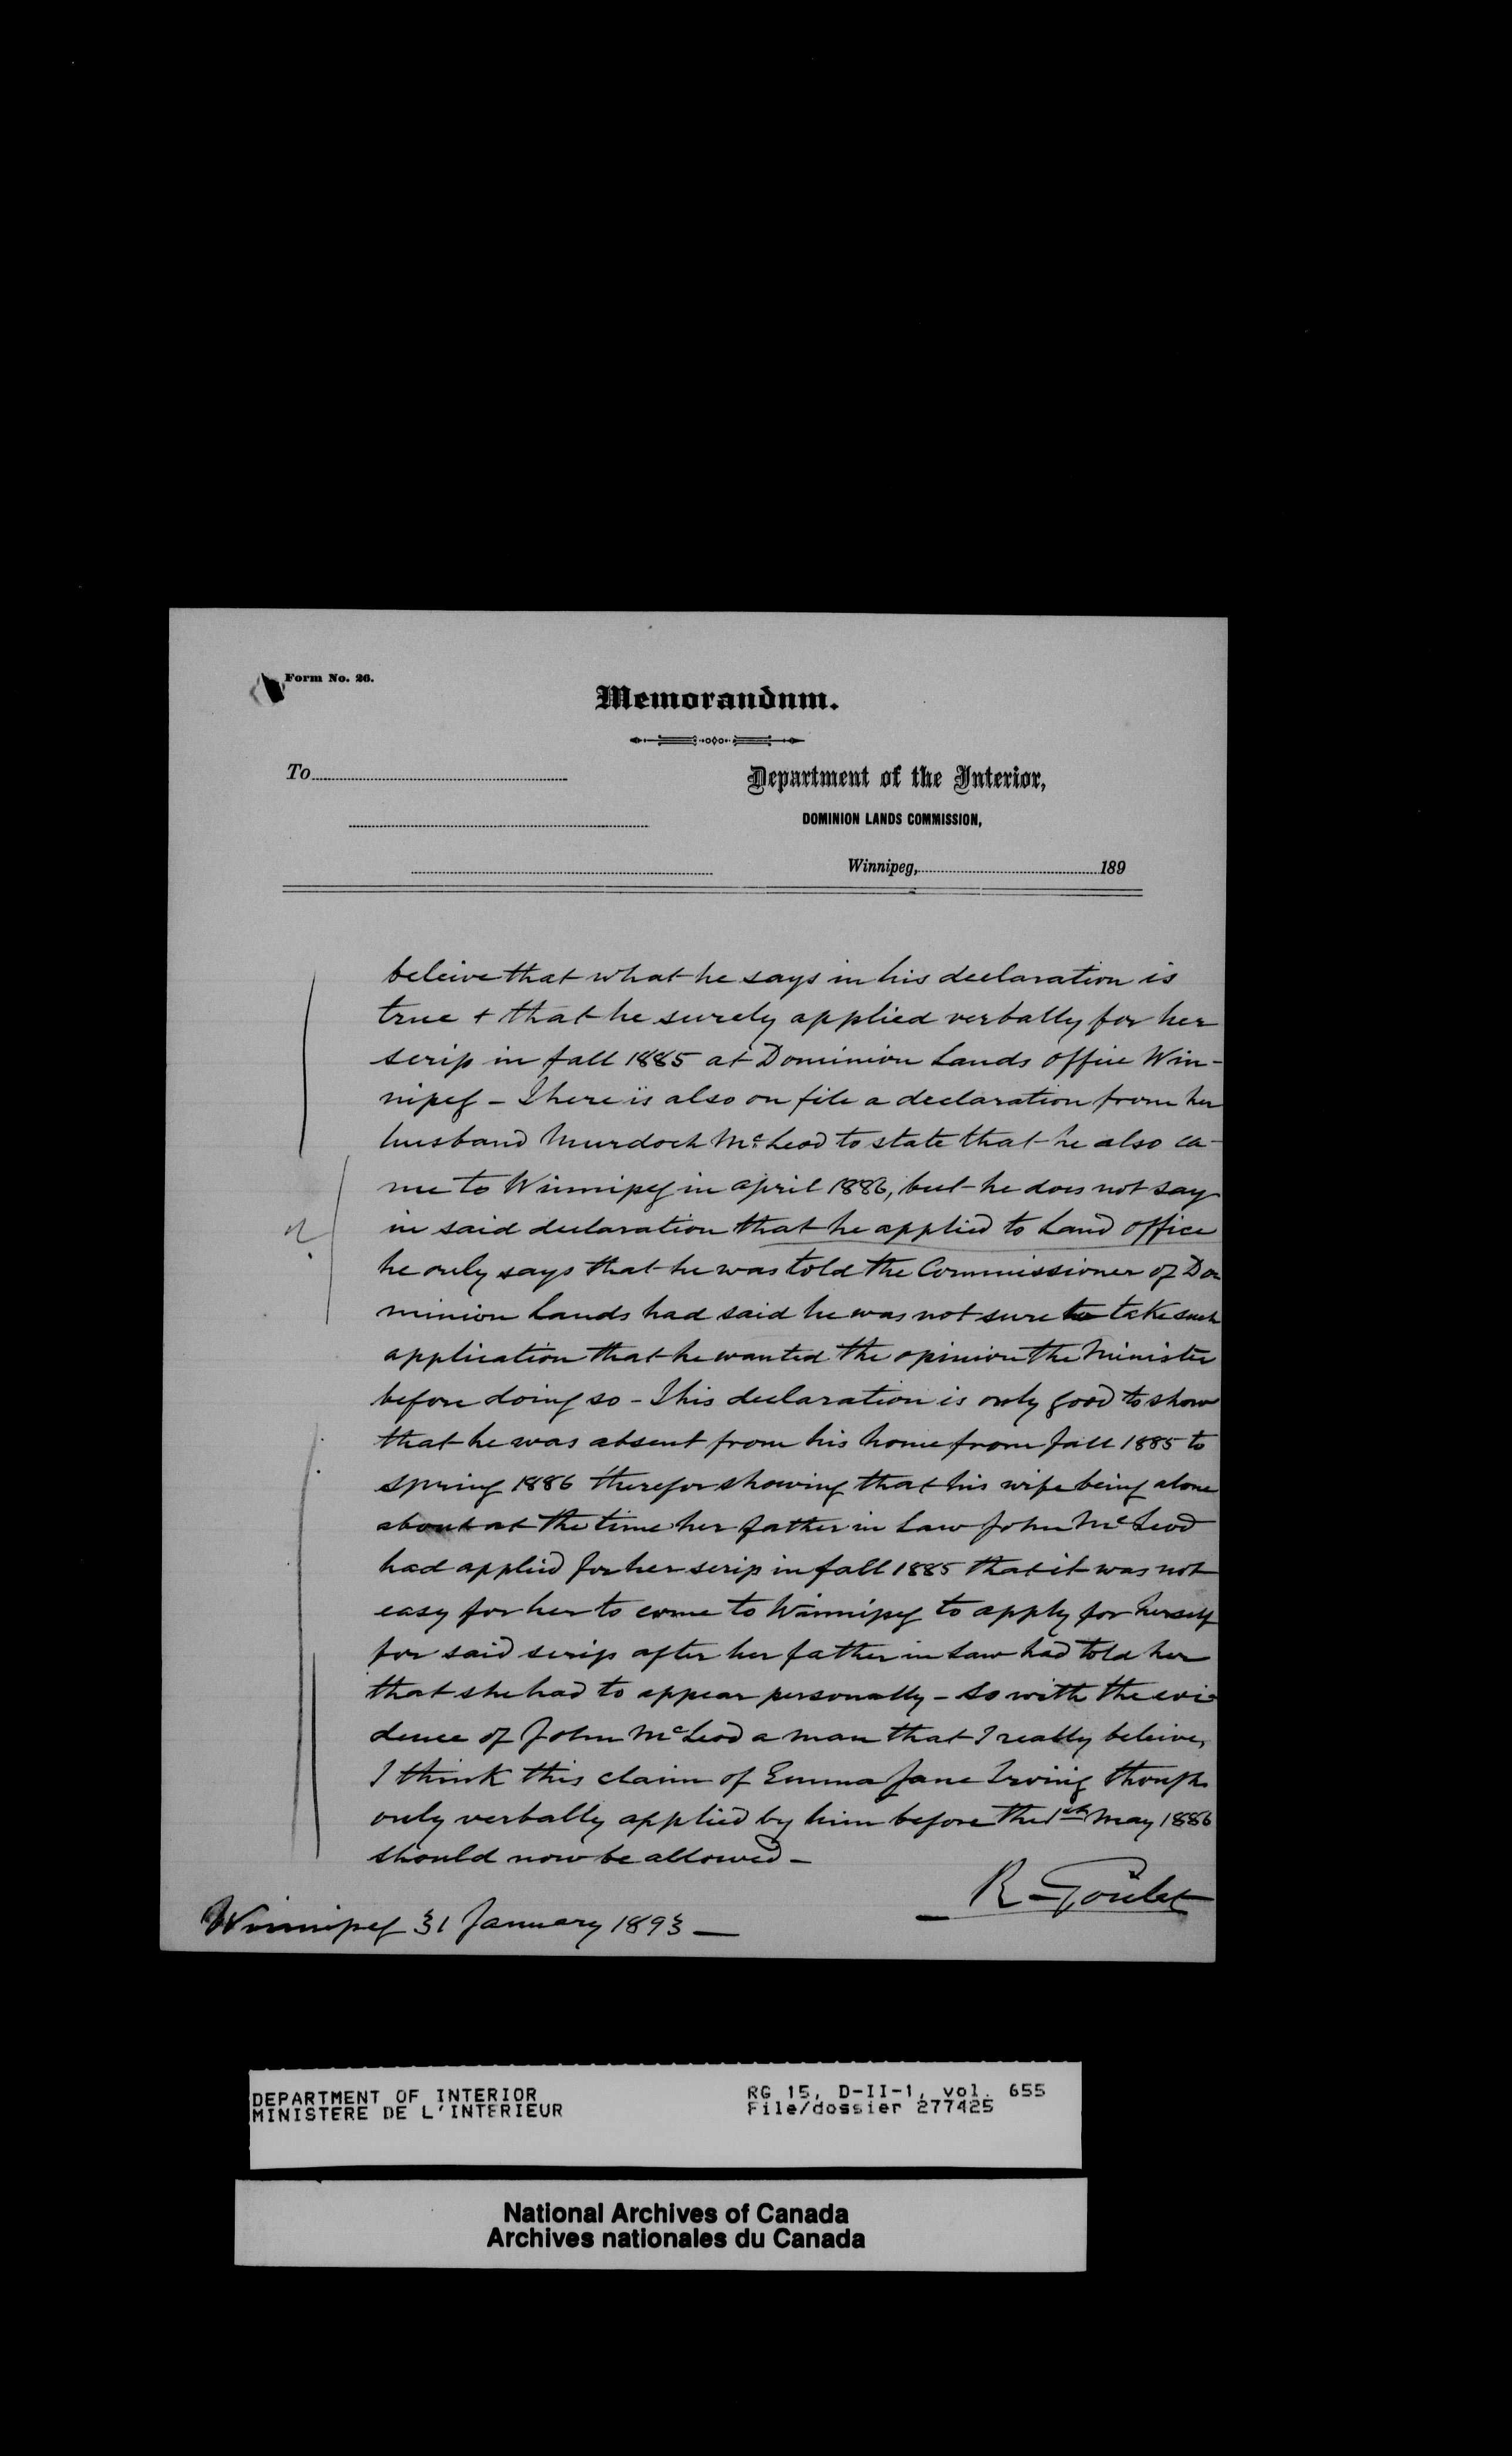 Form No. 26.
Memorandum.
To
Department of the Interior,
DOMINION LANDS COMMISSION,
Winnipeg, 189
beleive that what he says in his declaration is
true + that he surely applied verbally for her
scrip in fall 1885 at Dominion Lands office Win-
nipeg - There is also on file a declaration from her
husband Murdoch McLeod to state that he also ca-
me to Winnipeg in april 1886, but he does not say
in said declaration that he applied to Land office
he only says that he was told the Commissioner of Do
minion Lands had said he was not sure to take such
application that he wanted the opinion the Minister
before doing so - This declaration is only good to show
that he was absent from his home from fall 1885 to
spring 1886 therefor showing that his wife being alone
about at the time her father in Law John McLeod
had applied for her scrip in fall 1885 that it was not
easy for her to come to Winnipeg to apply for herself
for said scrip after her father in Law had told her
that she had to appear personally - So with the evi-
dence of John McLeod a man that I really beleive,
I think this claim of Emma Jane Irving though
only verbally applied by him before the 1st May 1886
should now be allowed -
R. Goulet
Winnipeg 31 January 1893 -
DEPARTMENT OF INTERIOR RG 15, D-II-1, vol. 655
MINISTERE DE L'INTERIEUR File/dossier 277425
National Archives of Canada
Archives nationales du Canada